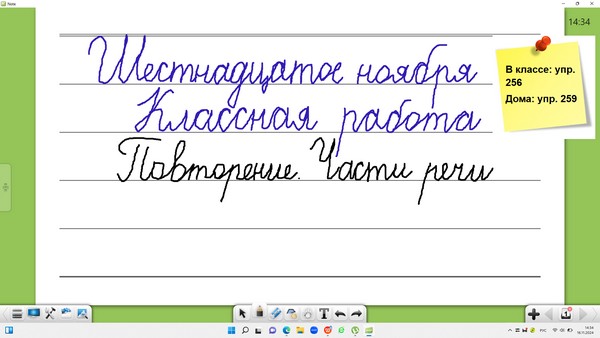 14:34
Шестнадцатое ноября
Классная работа
Повторение. Части речи
В классе: упр.
256
Дома: упр. 259
14:34
16.11.2024